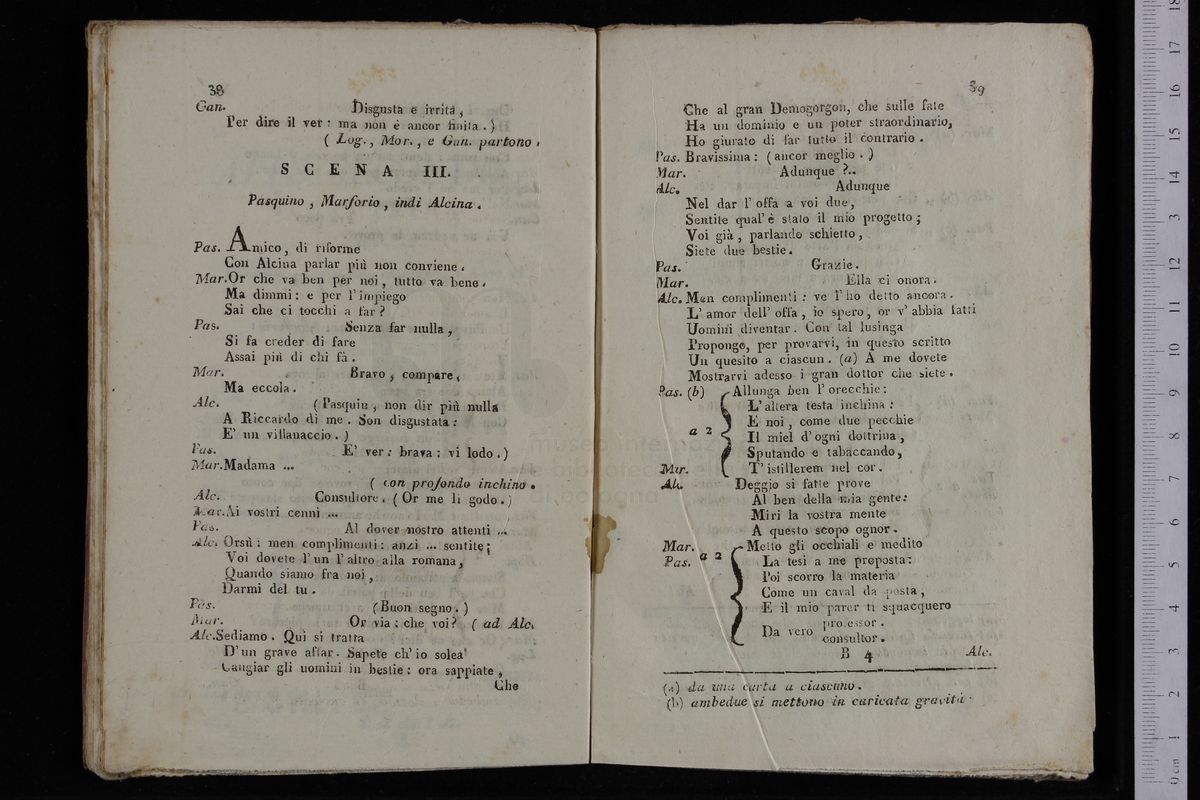 38
Gan. Disgusta e irrita,
Per dire il ver: ma non è ancor finita.)
( Log., Mor., e Gan. partono.
SCENA III.
Pasquino, Marforio, indi Alcina.
Pas. Amico, di riforme
Con Alcina parlar più non conviene.
Mar. Or che va ben per noi, tutto va bene.
Ma dimmi: e per l'impiego
Sai che ci tocchi a far?
Pas. Senza far nulla,
Si fa creder di fare
Assai più di chi fà.
Mar. Bravo, compare,
Ma eccola.
Alc. (Pasquin, non dir più nulla
A Riccardo di me. Son disgustata:
E' un villanaccio.)
Pas. E' ver: brava: vi lodo.)
Mar. Madama ...
( con profondo inchino.
Alc. Consultore. (Or me li godo.)
Mar. Ai vostri cenni ...
Pas. Al dover nostro attenti ...
Alc. Orsù: men complimenti: anzi ... sentite;
Voi dovete l'un l'altro alla romana,
Quando siamo fra noi,
Darmi del tu.
Pas. (Buon segno.)
Mar. Or via: che voi? ( ad Alc.
Alc. Sediamo. Qui si tratta
D'un grave affar. Sapete ch'io solea
Cangiar gli uomini in bestie: ora sappiate,
Che
39
Che al gran Demogorgon, che sulle fate
Ha un dominio e un poter straordinario,
Ho giurato di far tutto il contrario.
Pas. Bravissima: (ancor meglio.)
Mar. Adunque ?..
Alc. Adunque
Nel dar l'offa a voi due,
Sentite qual'è stato il mio progetto;
Voi già, parlando schietto,
Siete due bestie.
Pas. Grazie.
Mar. Ella ci onora.
Alc. Men complimenti: ve l'ho detto ancora.
L'amor dell'offa, io spero, or v'abbia fatti
Uomini diventar. Con tal lusinga
Propongo, per provarvi, in questo scritto
Un quesito a ciascun. (a) A me dovete
Mostrarvi adesso i gran dottor che siete.
Pas. (b) Allunga ben l'orecchie:
L'altera testa inchina:
E noi, come due pecchie
a 2 Il miel d'ogni dottrina,
Sputando e tabaccando,
Mar. T'istillerem nel cor.
Alc. Deggio si fatte prove
Al ben della mia gente:
Miri la vostra mente
A questo scopo ognor.
Mar. Metto gli occhiali e medito
Pas. a 2 La tesi a me proposta:
Poi scorro la materia
Come un caval da posta,
E il mio parer ti squacquero
Da vero professor.
consultor.
B 4 Alc.
(a) da una carta a ciascuno.
(b) ambedue si mettono in caricata gravità.
museo internazionale
e biblioteca della
di bologna
0 cm 1 2 3 4 5 6 7 8 9 10 11 12 13 14 15 16 17 18